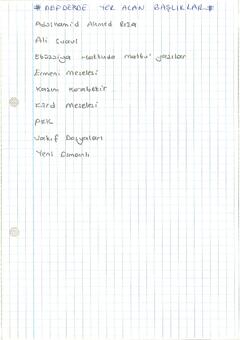 # DEFTERDE YER ALAN BAŞLIKLAR #
Abdülhamid Ahmed Rıza
Ali Suavi
Ebuzziya Hattında matbu' yazılar
Ermeni Meselesi
Kazım Karabekir
Kürd Meselesi
PKK
Vakıf Dosyaları
Yeni Osmanlı